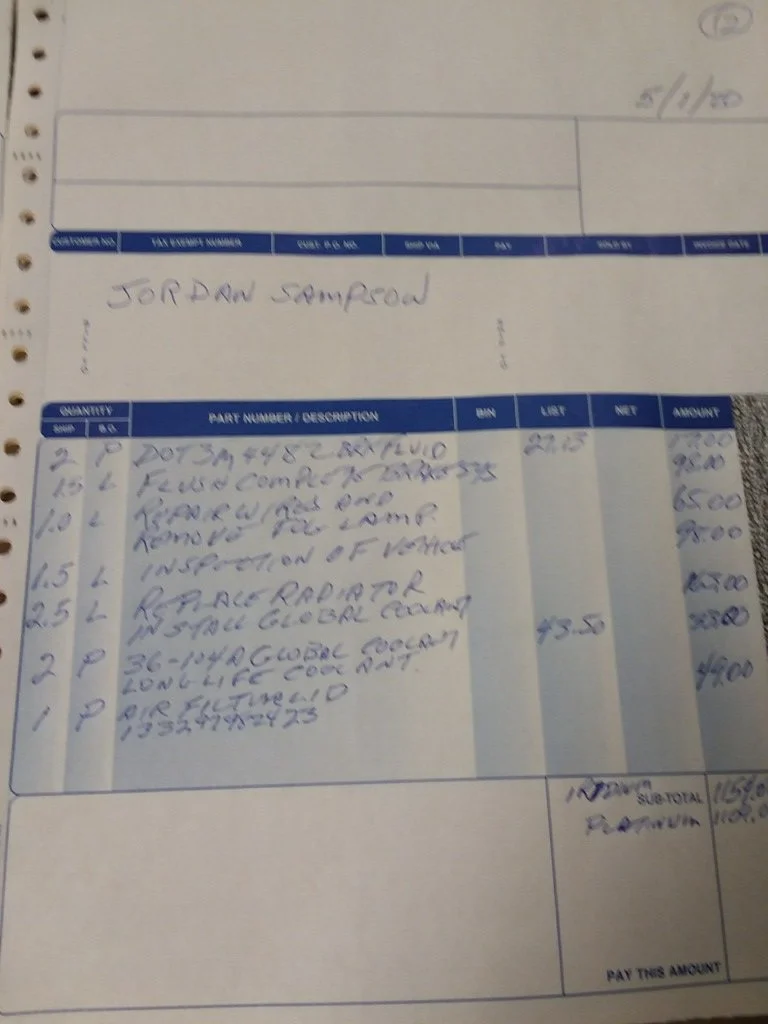 12
5/1/20
CUSTOMER NO. TAX EXEMPT NUMBER CUST. P.O. NO. SHIP VIA SOLD BY INVOICE DATE
JORDAN SAMPSON
QUANTITY
SHIP B.O. PART NUMBER / DESCRIPTION BIN LIST NET AMOUNT
2 P DOT 3M 4482 FLUID 27.13 17.00
1.5 L FLUSH COMPLETE 98.00
1.0 L REPAIR WIRES AND 65.00
REMOVE FOG LAMP.
1.5 L INSPECTION OF VEHICLE 98.00
2.5 L REPLACE RADIATOR
INSTALL GLOBAL COOLANT
2 P 36-104A GLOBAL COOLANT 43.50
LONG LIFE COOLANT.
1 P AIR LID 49.00
IRIDIUM SUB-TOTAL
PLATINUM
PAY THIS AMOUNT